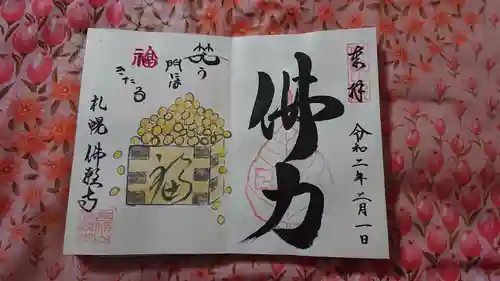 奉拝
佛力
令和二年二月一日
笑う
門には
福
きたる
福
札幌 佛願寺